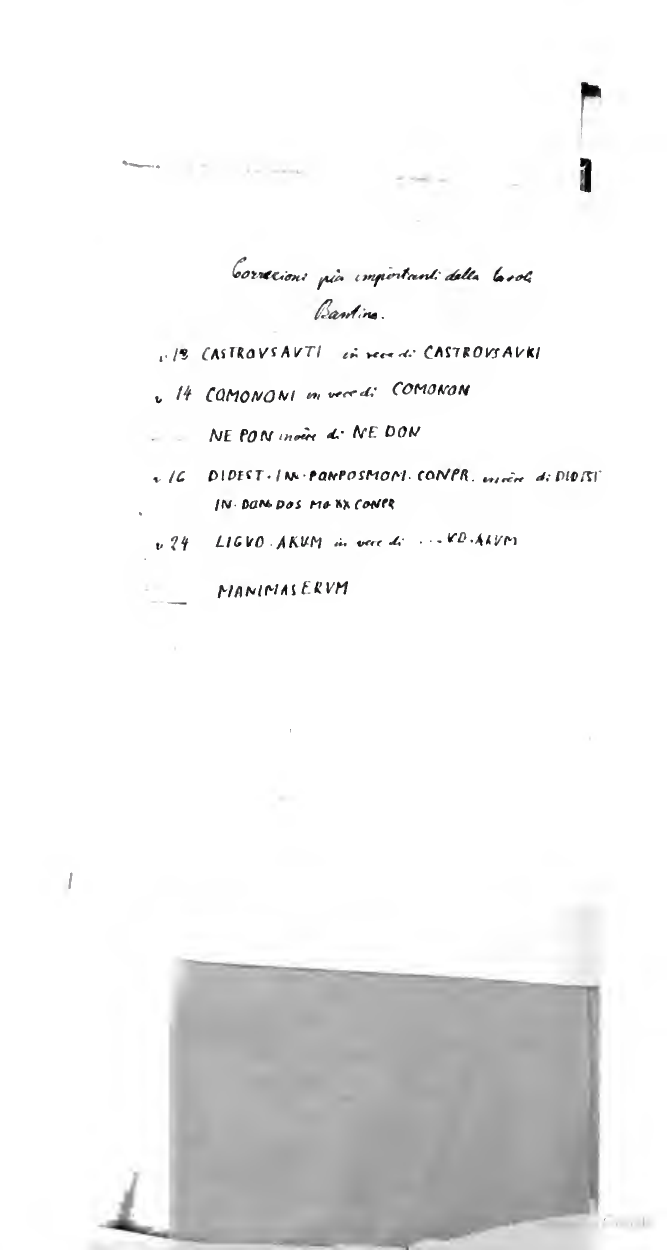 Correzioni più importanti della tavola
Bantina.
v. 13 CASTROVSAVTI in vece di CASTROVSAVKI
v 14 COMONONI in vece di COMONON
NE PON invece di NE DON
v 16 DIDEST. IN. PONPOSMOM. CONPR. invece di DIDIST
IN. DON. DOS MO XX CONPR
v 24 LIGVD. AKUM in vece di ...VD. AKVM
MANIMASERVM